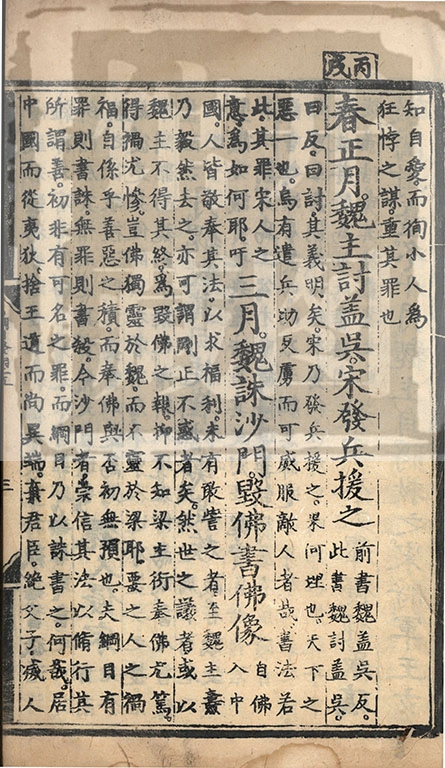 丙戌
知自愛而徇小人為
狂悖之謀重其罪也
春正月魏主討盖吳宋發兵援之
前書魏盖吳反
此書魏討盖吳
曰反曰討其義明矣宋乃發兵援之果何理也天下之
惡一也烏有遣兵助反虜而可威服敵人者哉書法若
此其罪宋人之
意為如何耶吁
三月魏誅沙門毀佛書佛像
自佛
入中
國人皆敬奉其法以求福利未有敢訾之者至魏主燾
乃毅然去之亦可謂剛正不惑者矣然世之議者或以
魏主不得其終為毀佛之報抑不知梁主衍奉佛尤篤
得禍尤慘豈佛獨靈於魏而不靈於梁耶要之人之禍
福自係乎善惡之積而奉佛與否初無預也夫綱目有
罪則書誅無罪則書殺今沙門者崇信其法以脩行其
所謂善初非有可名之罪而綱目乃以誅書之何哉居
中國而從夷狄捨王道而尚異端棄君臣絶父子滅人